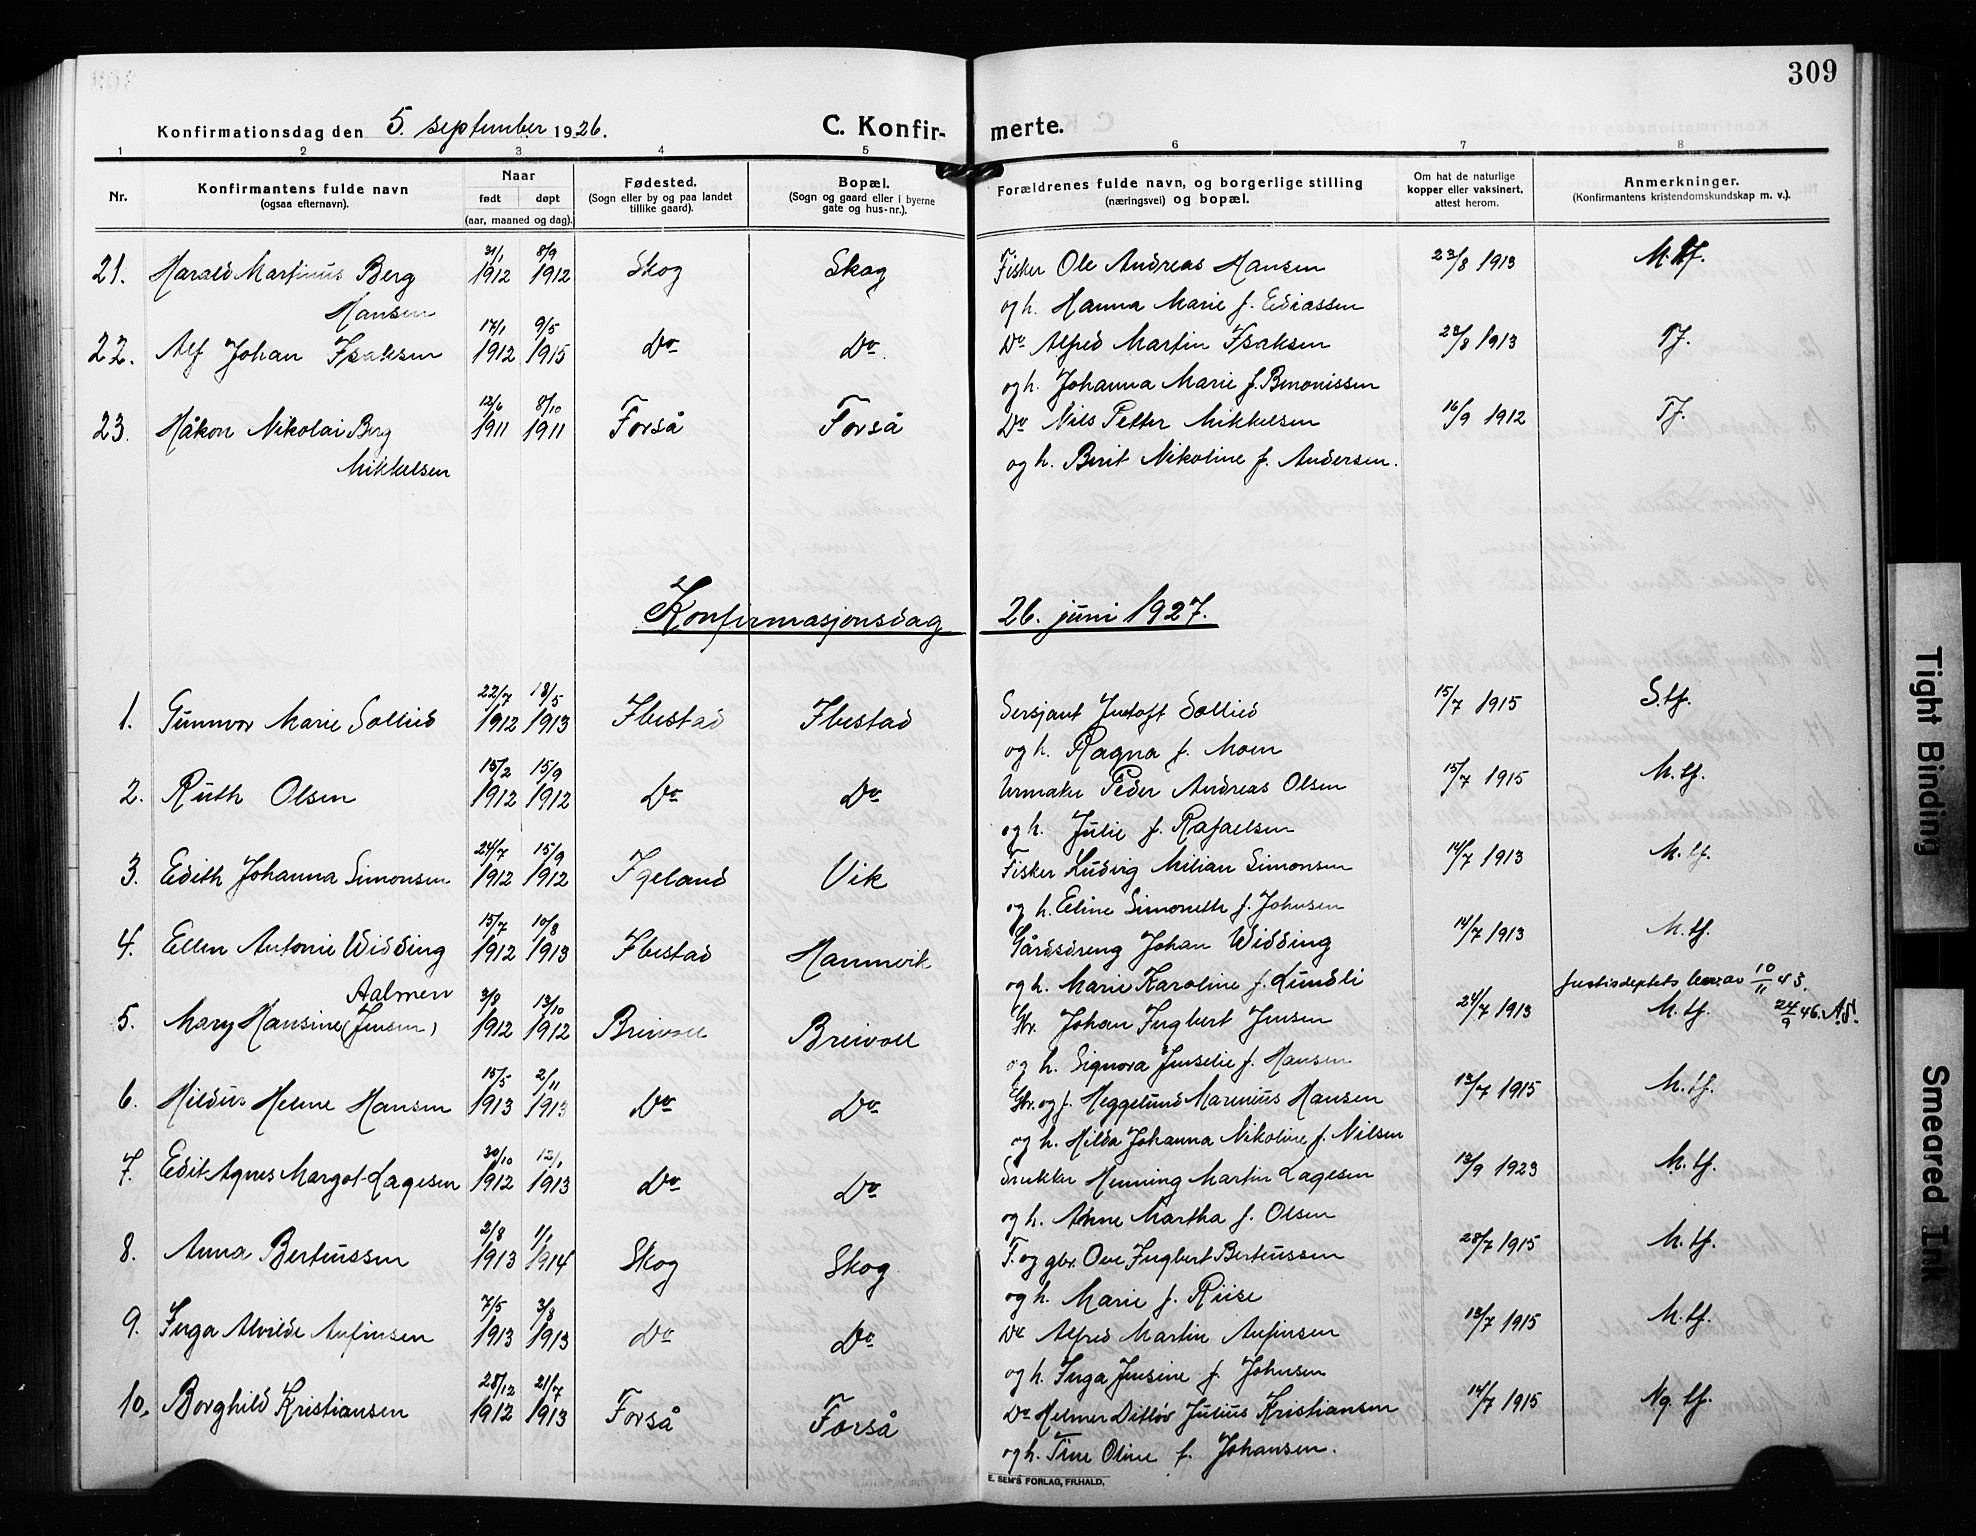 309
Konfirmationsdag den 5. september 1926. C. Konfir- merte.
1 2 3 4 5 6 7 8
Nr. Konfirmantens fulde navn (ogsaa efternavn). Naar født døpt (aar, maaned og dag). Fødested. (Sogn eller by og paa landet tillike gaard). Bopæl. (Sogn og gaard eller i byerne gate og hus-nr.). Forældrenes fulde navn, og borgerlige stilling (næringsvei) og bopæl. Om hat de naturlige kopper eller vaksinert, attest herom. Anmerkninger. (Konfirmantens kristendomskundskap m. v.).
21. Harald Martinus Berg 31/1 1912 8/9 1912 Skog Skog Fisker Ole Andreas Hansen 23/8 1913 M.tf.
Hansen og h. Hanna Marie f. Ediassen
22. Alf Johan Isaksen 17/1 1912 9/5 1915 Do Do Do Alfred Martin Isaksen 23/8 1913 Tf.
og h. Johanna Marie f. Benonissen
23. Håkon Nikolai Berg 12/6 1911 8/10 1911 Forså Forså Do Nils Petter Mikkelsen 16/9 1912 Tf.
Mikkelsen og h. Berit Nikoline f. Andersen.
Konfirmasjonsdag 26. juni 1927.
1. Gunnvor Marie Sollied 22/7 1912 18/5 1913 Ibestad Ibestad Sersjant Justoft Sollied 15/7 1915 S.tf.
og h. Ragna f. Moen
2. Ruth Olsen 15/2 1912 15/9 1912 Do Do Urmaker Peder Andreas Olsen 15/7 1915 M.tf.
og h. Julie f. Rafaelsen
3. Edith Johanna Simonsen 24/7 1912 15/9 1912 Igeland Vik Fisker Ludvig Milian Simonsen 14/7 1913 M.tf.
og h. Eline Simoneth f. Johnsen
4. Ellen Antonie Widding 15/7 1912 10/8 1913 Ibestad Hamnvik Gårdsdreng Johan Widding 14/7 1913 M.tf.
Aalmen og h. Marie Karoline f. Lundli Justisdeptets bev. av 10/11 43.
5. Mary Hansine (Jensen) 3/8 1912 13/10 1912 Breivoll Breivoll Gbr. Johan Ingbert Jensen 24/7 1913 M.tf. 24/9 46. A.S.
og h. Signora Jenselie f. Hansen
6. Hildur Helene Hansen 15/5 1913 2/11 1913 Do Do Gbr. og f. Heggelund Marenius Hansen 13/7 1915 M.tf.
og h. Hilda Johanna Nikoline f. Nilsen
7. Edit Agnes Margot Lagesen 30/10 1912 12/1 1913 Do Do Snekker Henning Martin Lagesen 13/9 1923 M.tf.
og h. Anne Martha f. Olsen
8. Anna Berteussen 2/8 1913 1/1 1914 Skog Skog F. og gbr. Ove Ingbert Berteussen 28/7 1915 M.tf.
og h. Marie f. Riise
9. Inga Alvilde Anfinsen 7/5 1913 3/8 1913 Do Do Do Alfred Martin Anfinsen 13/7 1915 M.tf.
og h. Inga Jensine f. Johnsen
10. Borghild Kristiansen 28/12 1912 21/7 1913 Forså Forså Do Helmer Ditløv Julius Kristiansen 14/7 1915 Ng. tf.
og h. Tine Oline f. Johansen.
E. SEM'S FORLAG, FR.HALD.
Tight Binding
Smeared Ink